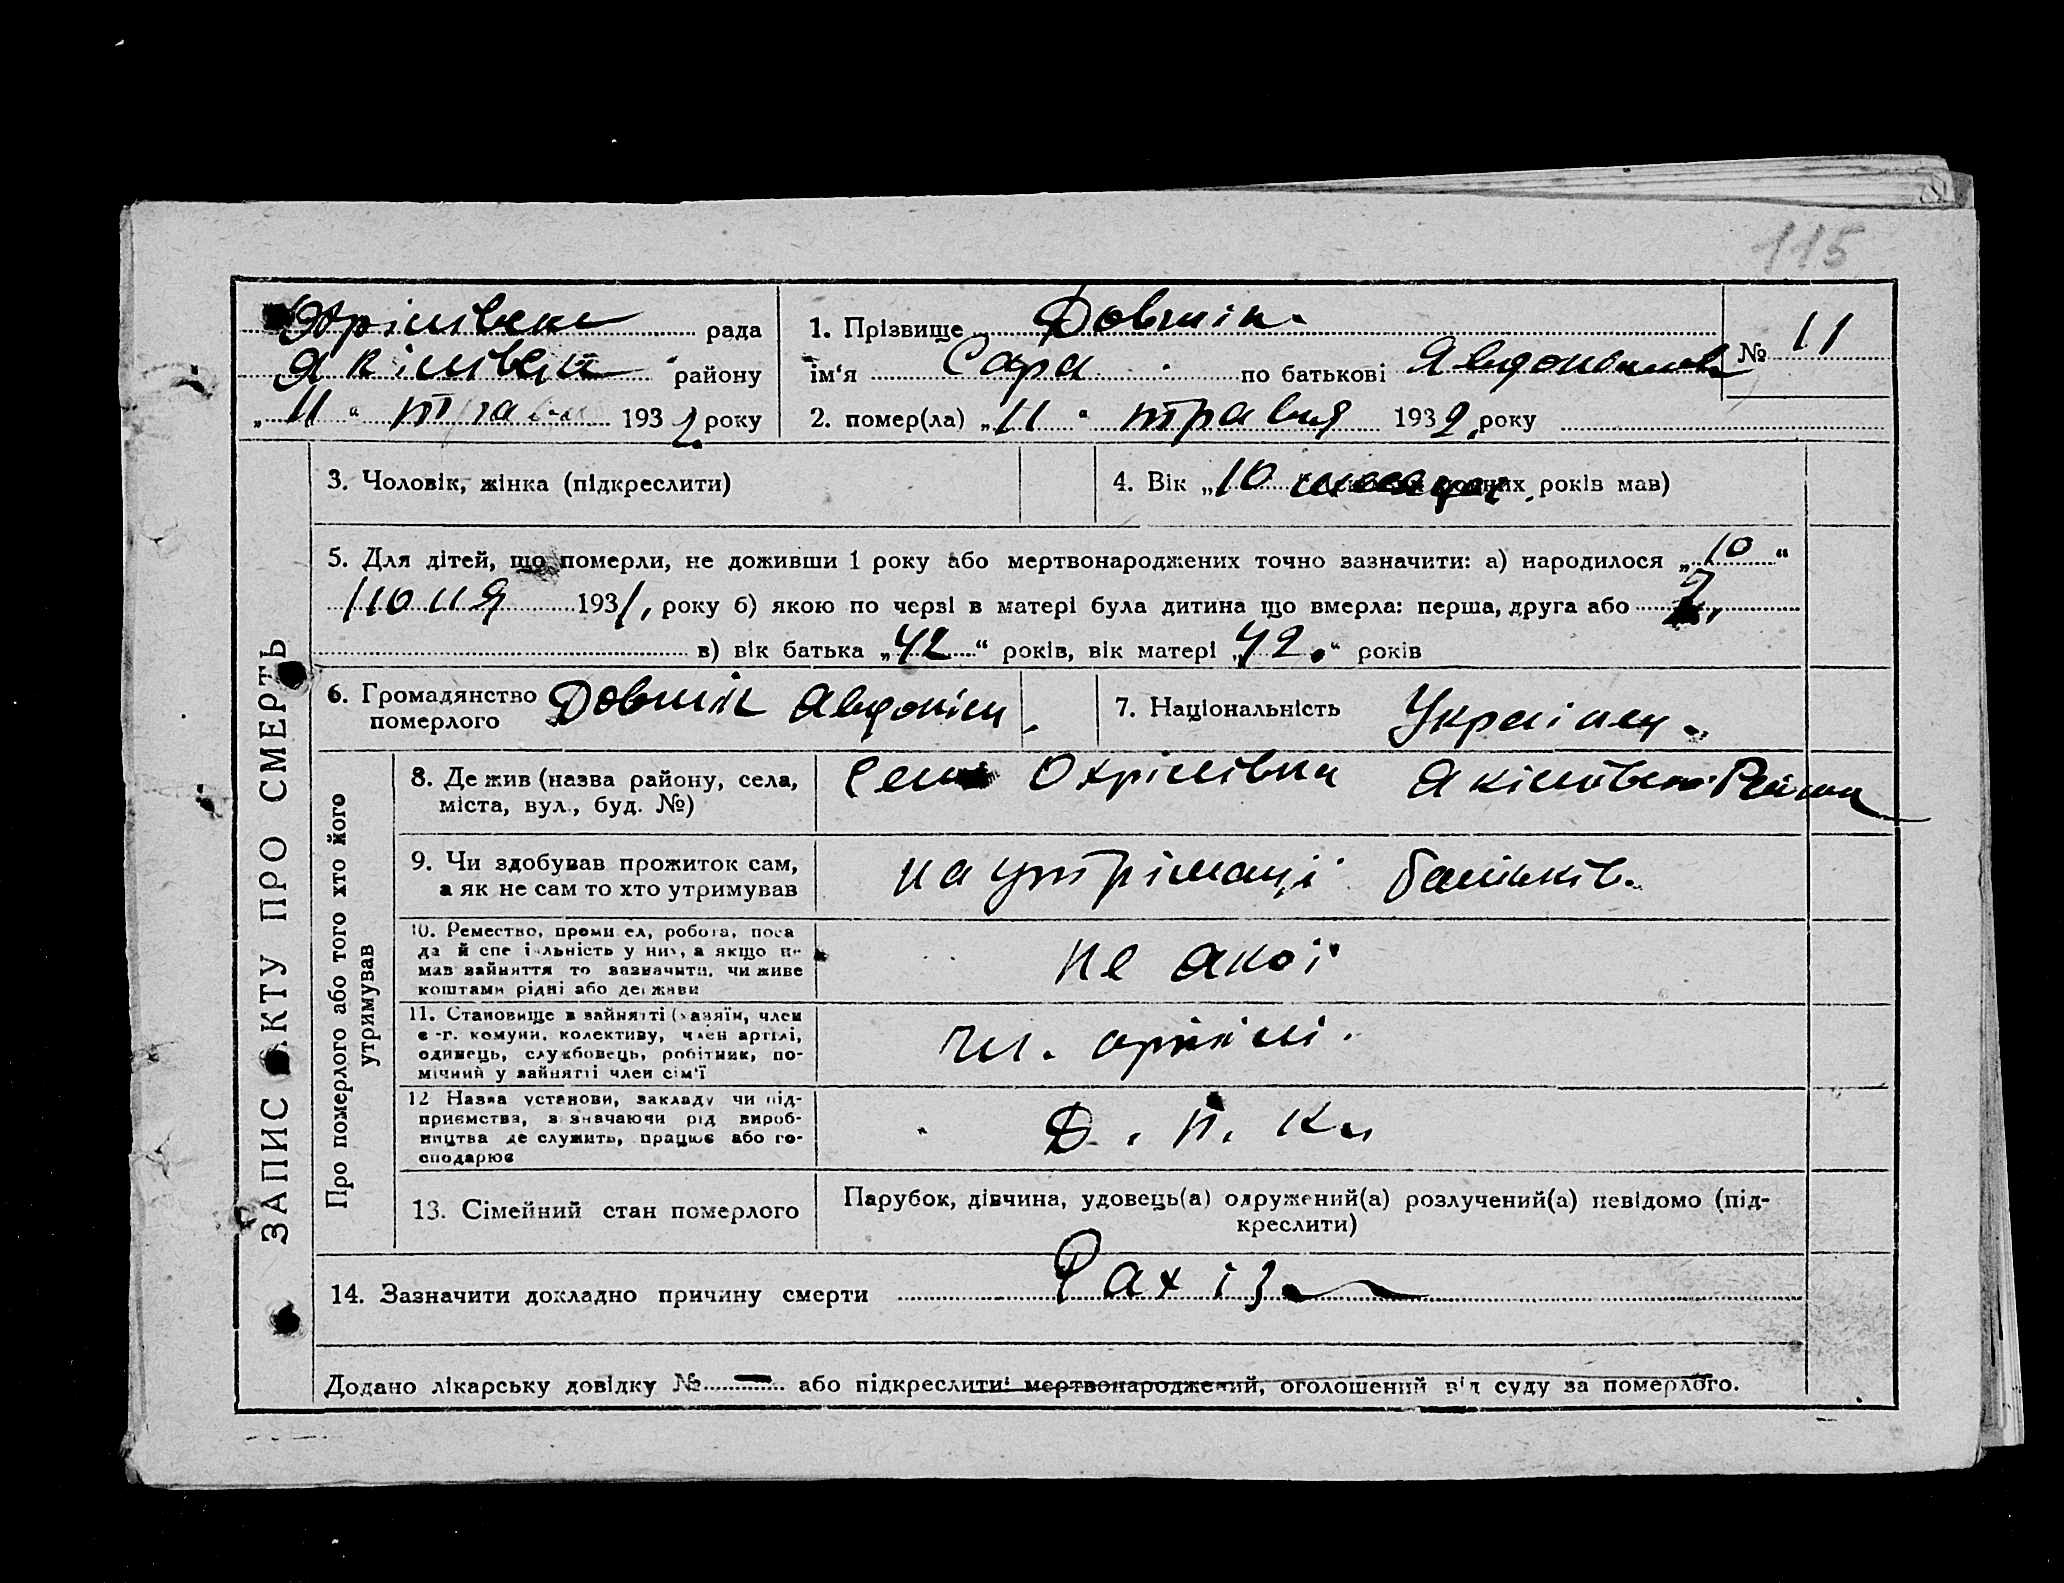 115
Охрімівська рада
Якімівськ району
„11“ травня 1932 року
1. Прізвище Довшік
ім'я Сара по батькові
№ 11
2. помер(ла) „11“ травня 1932 року
ЗАПИС АКТУ ПРО СМЕРТЬ
3. Чоловік, жінка (підкреслити)
4. Вік „10 місяців років мав)
5. Для дітей, що померли, не доживши 1 року або мертвонароджених точно зазначити: а) народилося „10“
1931, року б) якою по черзі в матері була дитина що вмерла: перша, друга або 7,
в) вік батька „42“ років, вік матері „42“ років
6. Громадянство Довшік
померлого
7. Національність Українец
Про померлого або того хто його утримував
8. Де жив (назва району, села,
міста, вул., буд. №)
село Охрімівка Якімівськ Району
9. Чи здобував прожиток сам,
а як не сам то хто утримував
на утріманці батьків.
10. Ремество, промисел, робота, поса
да й спеціяльність у них, а якщо не
мав зайняття то зазначити, чи живе
коштами рідні або держави
не якої
11. Становище в зайнятті (хазяїн, член
с-г. комуни, колективу, член артілі,
одинець, службовець, робітник, по-
мічний у зайнятті член сім'ї
чл. артілі.
12 Назва установи, закладу чи під-
приємства, зазначаючи рід вироб-
ництва де служить, працює або го-
сподарює
13. Сімейний стан померлого
Парубок, дівчина, удовець(а) одружений(а) розлучений(а) невідомо (під-
креслити)
14. Зазначити докладно причину смерти Рахіз
Додано лікарську довідку № — або підкреслити: мертвонароджений, оголошений від суду за померлого.